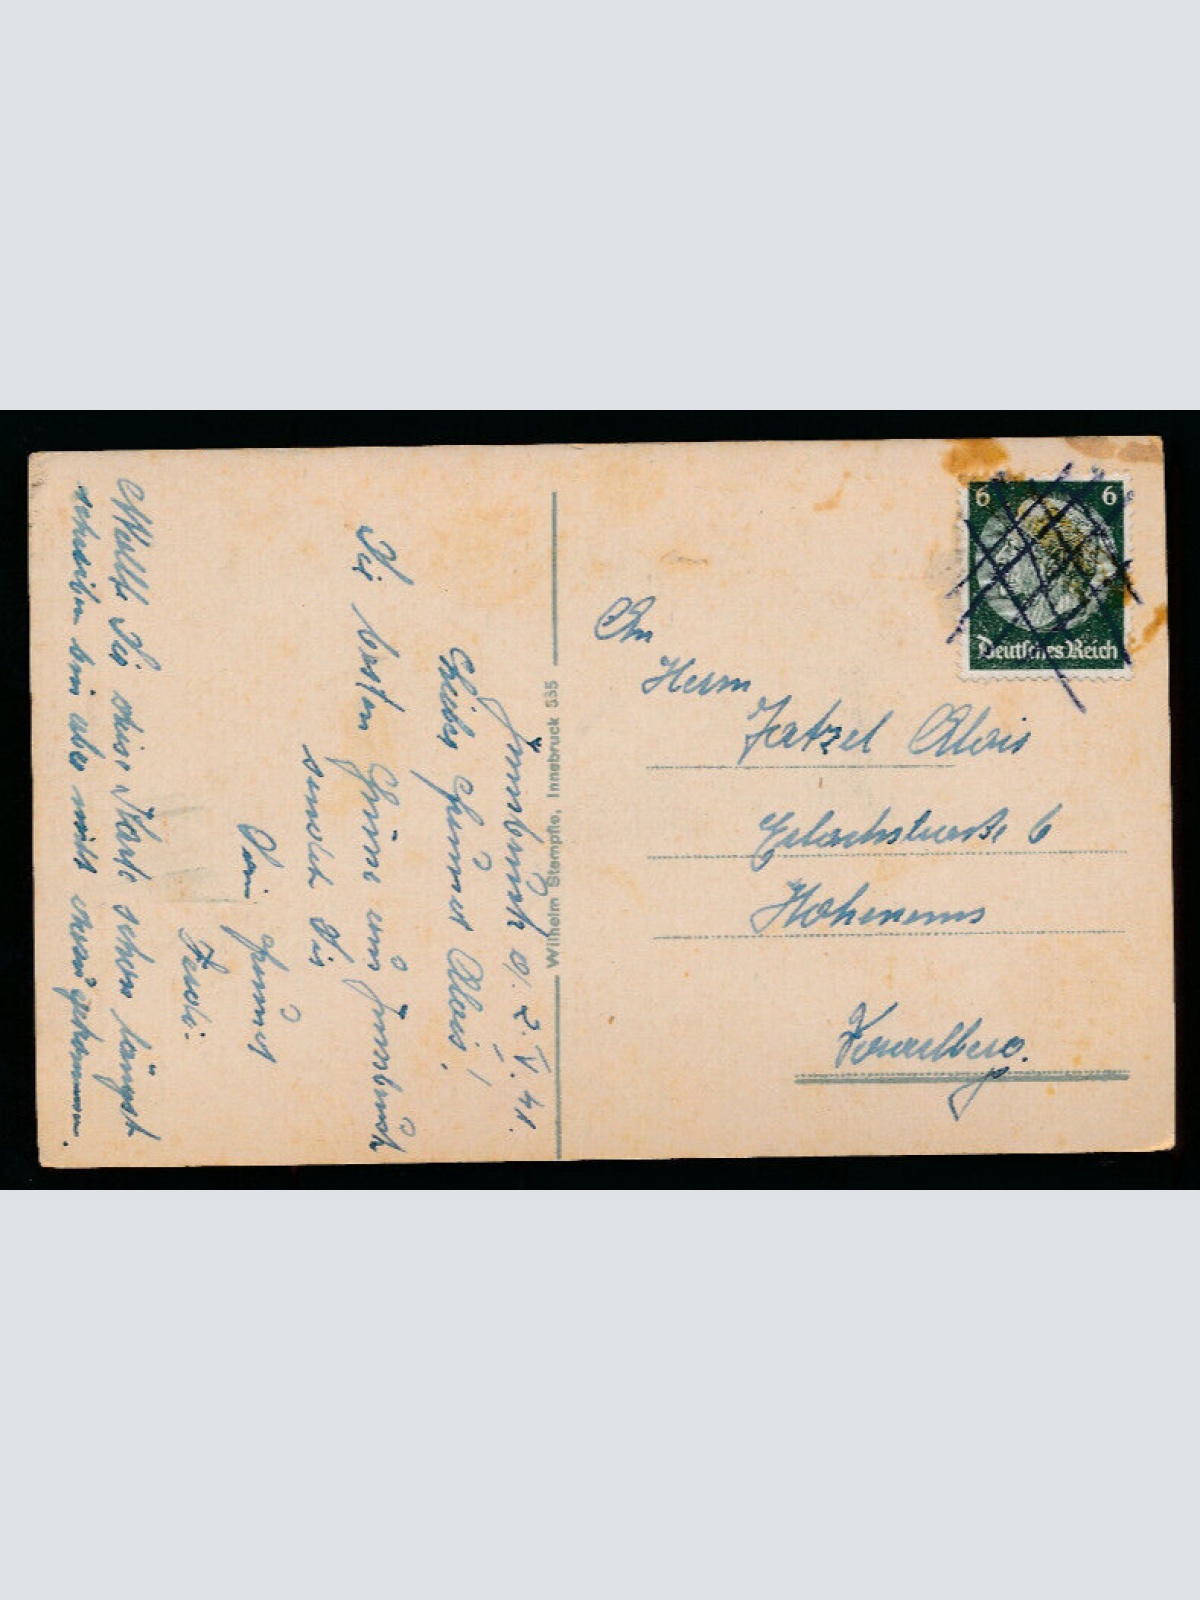 Innsbruck, d. 2. V. 41.
Lieber Freund Alois!
Die besten Grüße aus Innsbruck
sendet Dir
Dein Freund
Ferdi.
Wollte Dir diese Karte schon längst
schreiben bin aber nicht dazu gekommen.
Wilhelm Stempfle, Innsbruck 535
6 6
Deutsches Reich
An
Herrn
Fatzel Alois
Erlachstrasse 6
Hohenems
Vorarlberg.